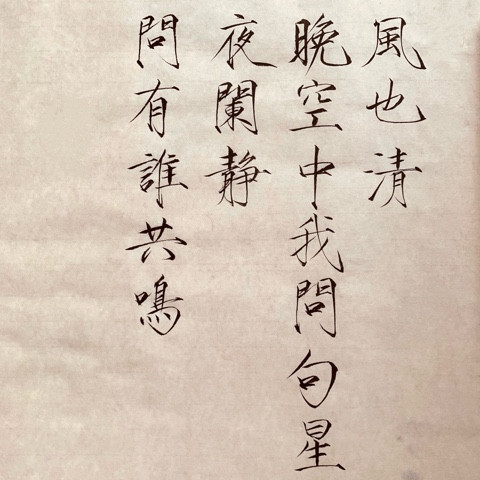 風也清
晚空中我問句星
夜闌靜
問有誰共鳴